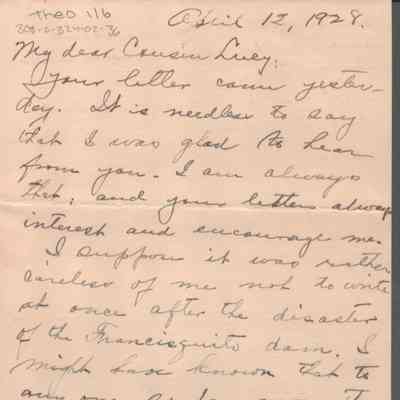 Theo 116
April 12, 1928.
My dear Cousin Lucy:
Your letter came yester-
day. It is needless to say
that I was glad to hear
from you. I am always
that; and your letters always
interest and encourage me.
I suppose it was rather
careless of me not to write
at once after the disaster
of the Francisquito dam. I
might have known that to
any one